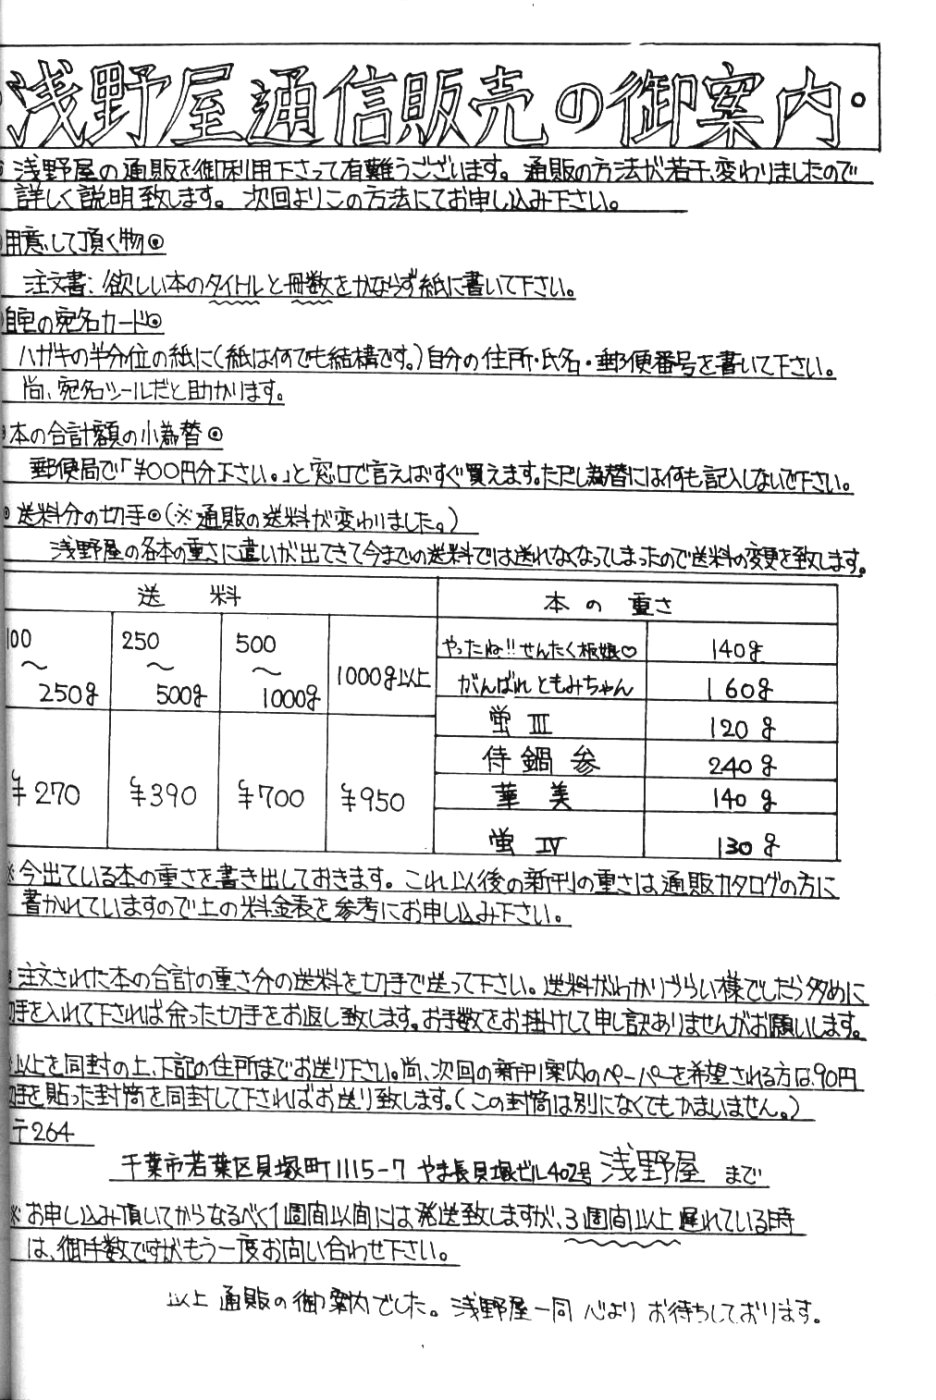 浅野屋通信販売の御案内。
浅野屋の通販を御利用下さって有難うございます。通販の方法が若干変わりましたので
詳しく説明致します。次回よりこの方法にてお申し込み下さい。
用意して頂く物◎
注文書:欲しい本のタイトルと冊数をかならず紙に書いて下さい。
自宅の宛名カード◎
ハガキの半分位の紙に(紙は何でも結構です。)自分の住所・氏名・郵便番号を書いて下さい。
尚、宛名シールだと助かります。
本の合計額の小為替◎
郵便局で「¥〇〇円分下さい。」と窓口で言えばすぐ買えます。ただし為替には何も記入しないで下さい。
◎送料分の切手◎(※通販の送料が変わりました。)
浅野屋の各本の重さに違いが出てきて今までの送料では送れなくなってしまったので送料の変更を致します。
送料
100〜250g 250〜500g 500〜1000g 1000g以上
¥270 ¥390 ¥700 ¥950
本の重さ
やったね!!せんたく板娘♡ 140g
がんばれともみちゃん 160g
蛍III 120g
侍鍋参 240g
華美 140g
蛍IV 130g
※今出ている本の重さを書き出しておきます。これ以後の新刊の重さは通販カタログの方に
書かれていますので上の料金表を参考にお申し込み下さい。
注文された本の合計の重さ分の送料を切手で送って下さい。送料がわかりづらい様でしたら多めに
切手を入れて下されば余った切手をお返し致します。お手数をお掛けして申し訳ありませんがお願いします。
※以上を同封の上、下記の住所までお送り下さい。尚、次回の新刊案内のペーパーを希望される方は、90円
切手を貼った封筒を同封して下さればお送り致します。(この封筒は別になくてもかまいません。)
〒264
千葉市若葉区貝塚町1115-7 やま長貝塚ビル402号 浅野屋 まで
※お申し込み頂いてからなるべく1週間以内には発送致しますが、3週間以上遅れている時
は、御手数ですがもう一度お問い合わせ下さい。
以上 通販の御案内でした。浅野屋一同 心よりお待ちしております。